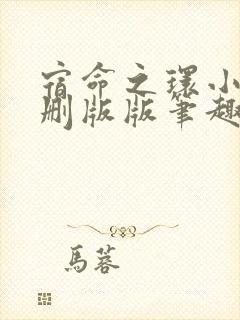 宿命之環小
删版版筆趣
馬蓉